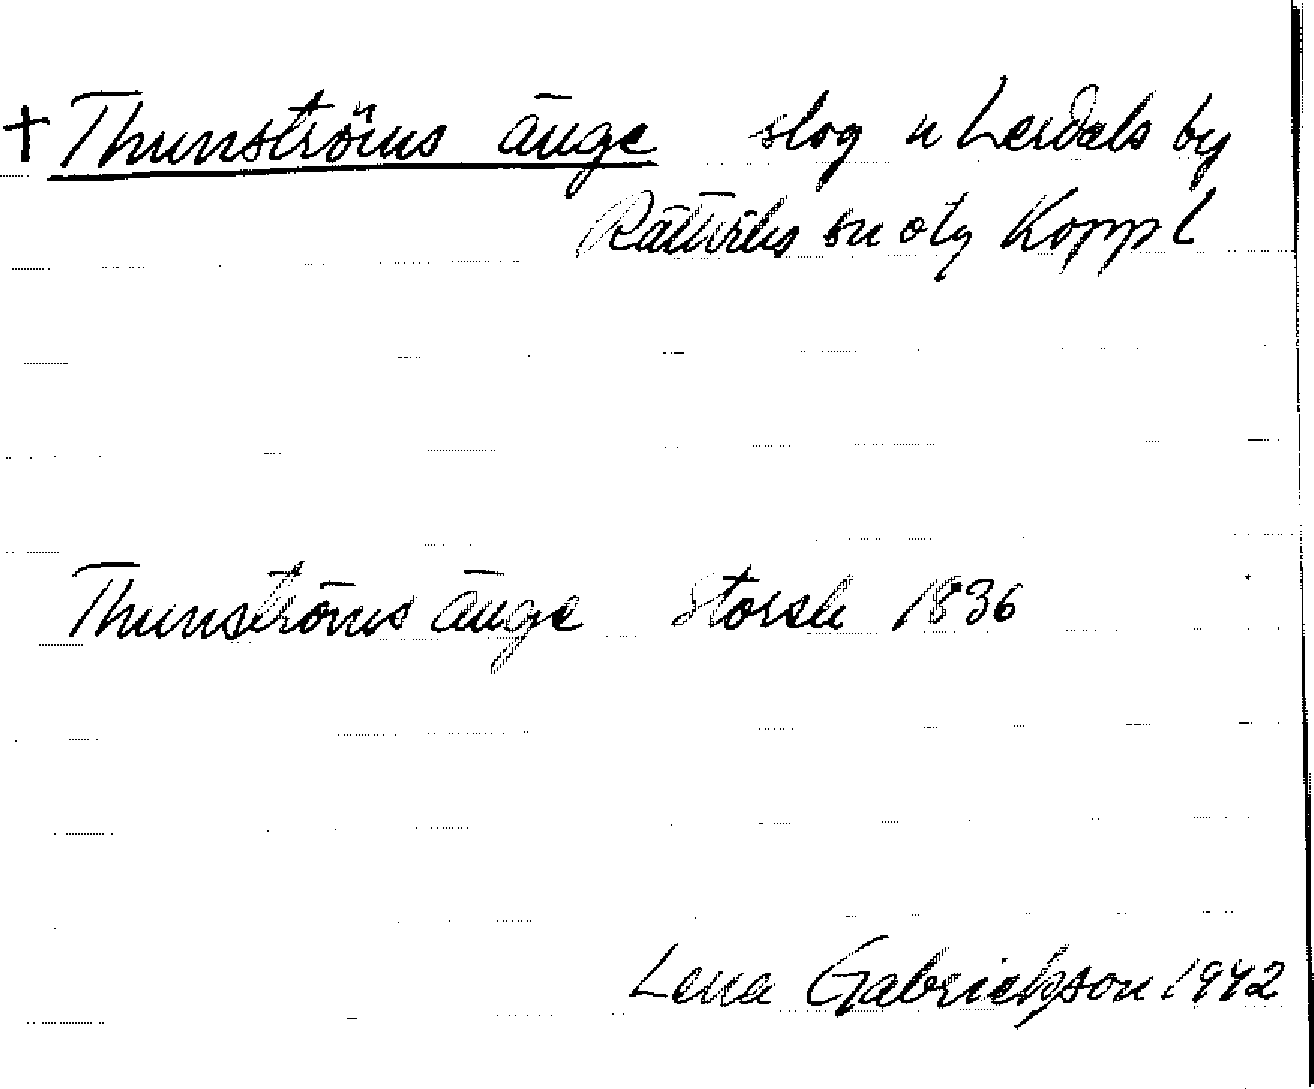 † Thunströms änge slog u Lerdals by
Rättviks sn otg Koppl
Thunströms änge Storsk 1836
Lena Gabrielsson 1942